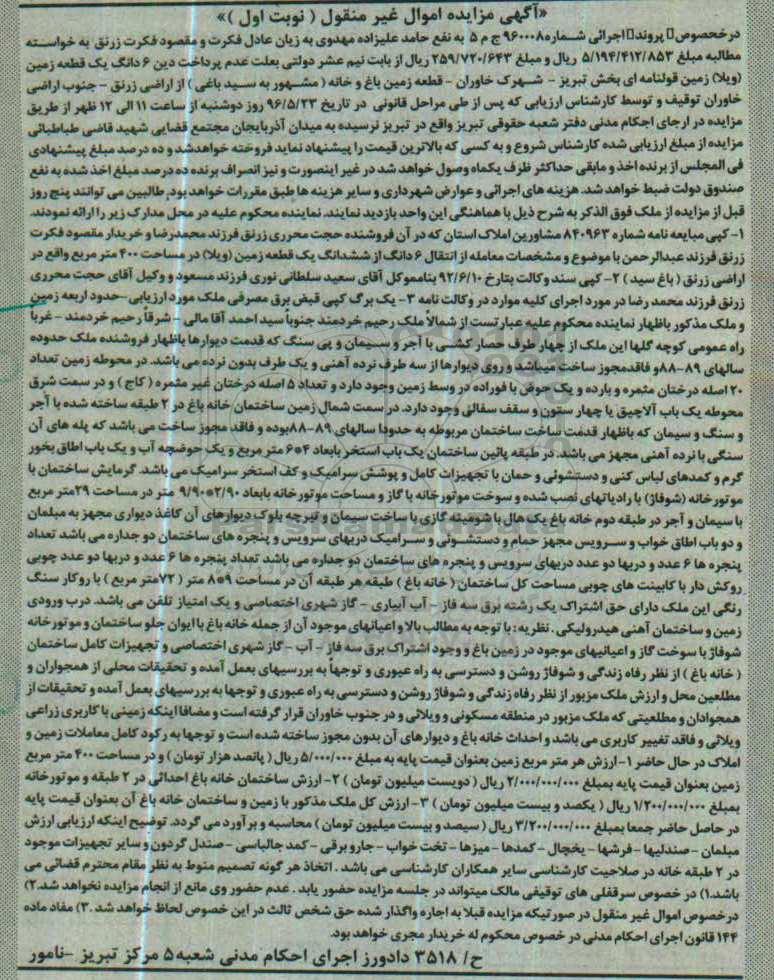 «آگهی مزایده اموال غیر منقول ( نوبت اول )»
درخصوص پرونده اجرائی شماره ۹۶۰۰۰۸ ج م ۵ به نفع حامد علیزاده مهدوی به زیان عادل فکرت و مقصود فکرت زرنق به خواسته
مطالبه مبلغ ۵/۱۹۴/۴۱۲/۸۵۳ ریال و مبلغ ۲۵۹/۷۲۰/۶۴۳ ریال از بابت نیم عشر دولتی بعلت عدم پرداخت دین ۶ دانگ یک قطعه زمین
(ویلا) زمین قولنامه ای بخش تبریز - شهرک خاوران - قطعه زمین باغ و خانه ( مشهور به سید باغی ) از اراضی زرنق - جنوب اراضی
خاوران توقیف و توسط کارشناس ارزیابی که پس از طی مراحل قانونی در تاریخ ۹۶/۵/۲۳ روز دوشنبه از ساعت ۱۱ الی ۱۲ ظهر از طریق
مزایده در اجرای احکام مدنی دفتر شعبه حقوقی تبریز واقع در تبریز نرسیده به میدان آذربایجان مجتمع قضایی شهید قاضی طباطبائی
مزایده از مبلغ ارزیابی شده کارشناس شروع و به کسی که بالاترین قیمت را پیشنهاد نماید فروخته خواهدشد و ده درصد مبلغ پیشنهادی
فی المجلس از برنده اخذ و مابقی حداکثر ظرف یکماه وصول خواهد شد در غیر اینصورت و نیز انصراف برنده ده درصد مبلغ اخذ شده به نفع
صندوق دولت ضبط خواهد شد. هزینه های اجرائی و عوارض شهرداری و سایر هزینه ها طبق مقررات خواهد بود. طالبین می توانند پنج روز
قبل از مزایده از ملک فوق الذکر به شرح ذیل با هماهنگی این واحد بازدید نمایند. نماینده محکوم علیه در محل مدارک زیر را ارائه نمودند.
۱- کپی مبایعه نامه شماره ۸۴۰۹۶۳ مشاورین املاک استان که در آن فروشنده حجت محرری زرنق فرزند محمدرضا و خریدار مقصود فکرت
زرنق فرزند عبدالرحمن با موضوع و مشخصات معامله از انتقال ۶ دانگ از ششدانگ یک قطعه زمین (ویلا) در مساحت ۴۰۰ متر مربع واقع در
اراضی زرنق ( باغ سید ) ۲- کپی سند وکالت بتاریخ ۹۲/۶/۱۰ بنامموکل آقای سعید سلطانی نوری فرزند مسعود و وکیل آقای حجت محرری
زرنق فرزند محمد رضا در مورد اجرای کلیه موارد در وکالت نامه ۳- یک برگ کپی قبض برق مصرفی ملک مورد ارزیابی-حدود اربعه زمین
و ملک مذکور باظهار نماینده محکوم علیه عبارتست از شمالاً ملک رحیم خردمند جنوباً سید احمد آقا مالی - شرقاً رحیم خردمند - غرباً
راه عمومی کوچه گلها این ملک از چهار طرف حصار کشی با آجر و سیمان و پی سنگ که قدمت دیوارها باظهار فروشنده ملک حدوده
سالهای ۸۹-۸۸ و فاقدمجوز ساخت میباشد و روی دیوارها از سه طرف نرده آهنی و یک طرف بدون نرده می باشد. در محوطه زمین تعداد
۲۰ اصله درختان مثمره و بارده و یک حوض با فوراده در وسط زمین وجود دارد و تعداد ۵ اصله درختان غیر مثمره ( کاج ) و در سمت شرق
محوطه یک باب آلاچیق با چهار ستون و سقف سفالی وجود دارد. در سمت شمال زمین ساختمان خانه باغ در ۲ طبقه ساخته شده با آجر
و سنگ و سیمان که باظهار قدمت ساخت ساختمان مربوطه به حدودا سالهای ۸۹-۸۸بوده و فاقد مجوز ساخت می باشد که پله های آن
سنگی با نرده آهنی مجهز می باشد. در طبقه پائین ساختمان یک باب استخر بابعاد ۴*۶ متر مربع و یک حوضچه آب و یک باب اطاق بخور
گرم و کمدهای لباس کنی و دستشوئی و حمان با تجهیزات کامل و پوشش سرامیک و کف استخر سرامیک می باشد. گرمایش ساختمان با
موتورخانه (شوفاژ) با رادیاتهای نصب شده و سوخت موتورخانه با گاز و مساحت موتورخانه بابعاد ۲/۹۰*۹/۹۰ متر در مساحت ۲۹متر مربع
با سیمان و آجر در طبقه دوم خانه باغ یک هال با شومینه گازی با ساخت سیمان و قیرچه بلوک دیوارهای آن کاغذ دیواری مجهز به مبلمان
و دو باب اطاق خواب و سرویس مجهز حمام و دستشوئی و سرامیک دربهای سرویس و پنجره های ساختمان دو جداره می باشد تعداد
پنجره ها ۶ عدد و دربها دو عدد دربهای سرویس و پنجره های ساختمان دو جداره می باشد تعداد پنجره ها ۶ عدد و دربها دو عدد چوبی
روکش دار با کابینت های چوبی مساحت کل ساختمان ( خانه باغ ) طبقه هر طبقه آن در مساحت ۹*۸ متر ( ۷۲متر مربع ) با روکار سنگ
رنگی این ملک دارای حق اشتراک یک رشته برق سه فاز - آب آبیاری - گاز شهری اختصاصی و یک امتیاز تلفن می باشد. درب ورودی
زمین و ساختمان آهنی هیدرولیکی . نظریه : با توجه به مطالب بالا و اعیانهای موجود آن از جمله خانه باغ با ایوان جلو ساختمان و موتورخانه
شوفاژ با سوخت گاز و اعیانیهای موجود در زمین باغ و وجود اشتراک برق سه فاز - آب - گاز شهری اختصاصی و تجهیزات کامل ساختمان
( خانه باغ ) از نظر رفاه زندگی و شوفاژ روشن و دسترسی به راه عبوری و توجهاً به بررسیهای بعمل آمده و تحقیقات محلی از همجواران و
مطلعین محل و ارزش ملک مزبور از نظر رفاه زندگی و شوفاژ روشن و دسترسی به راه عبوری و توجها به بررسیهای بعمل آمده و تحقیقات از
همجوادان و مطلعیتی که ملک مزبور در منطقه مسکونی و ویلائی و در جنوب خاوران قرار گرفته است و مضافا اینکه زمینی با کاربری زراعی
ویلائی و فاقد تغییر کاربری می باشد و احداث خانه باغ و دیوارهای آن بدون مجوز ساخته شده است و توجها به رکود کامل معاملات زمین و
املاک در حال حاضر ۱- ارزش هر متر مربع زمین بعنوان قیمت پایه به مبلغ ۵/۰۰۰/۰۰۰ ریال ( پانصد هزار تومان ) و در مساحت ۴۰۰ متر مربع
زمین بعنوان قیمت پایه بمبلغ ۲/۰۰۰/۰۰۰/۰۰۰ ریال ( دویست میلیون تومان ) ۲- ارزش ساختمان خانه باغ احداثی در ۲ طبقه و موتورخانه
بمبلغ ۱/۲۰۰/۰۰۰/۰۰۰ ریال ( یکصد و بیست میلیون تومان ) ۳- ارزش کل ملک مذکور با زمین و ساختمان خانه باغ آن بعنوان قیمت پایه
در حاصل حاضر جمعا بمبلغ ۳/۲۰۰/۰۰۰/۰۰۰ ریال ( سیصد و بیست میلیون تومان ) محاسبه و برآورد می گردد. توضیح اینکه ارزیابی ارزش
مبلمان - صندلیها - فرشها - یخچال - کمدها - میزها - تخت خواب - جاروبرقی - کمد جالباسی - صندل گردون و سایر تجهیزات موجود
در ۲ طبقه خانه در صلاحیت کارشناسی سایر همکاران کارشناسی می باشد . اتخاذ هر گونه تصمیم منوط به نظر مقام محترم قضائی می
باشد.۱) در خصوص سرقفلی های توقیفی مالک میتواند در جلسه مزایده حضور یابد . عدم حضور وی مانع از انجام مزایده نخواهد شد.۲)
درخصوص اموال غیر منقول در صورتیکه مزایده قبلا به اجاره واگذار شده حق شخص ثالث در این خصوص لحاظ خواهد شد .۳) مفاد ماده
۱۴۴ قانون اجرای احکام مدنی در خصوص محکوم له خریدار مجری خواهد بود.
ح/ ۳۵۱۸ دادورز اجرای احکام مدنی شعبه ۵ مرکز تبریز -نامور